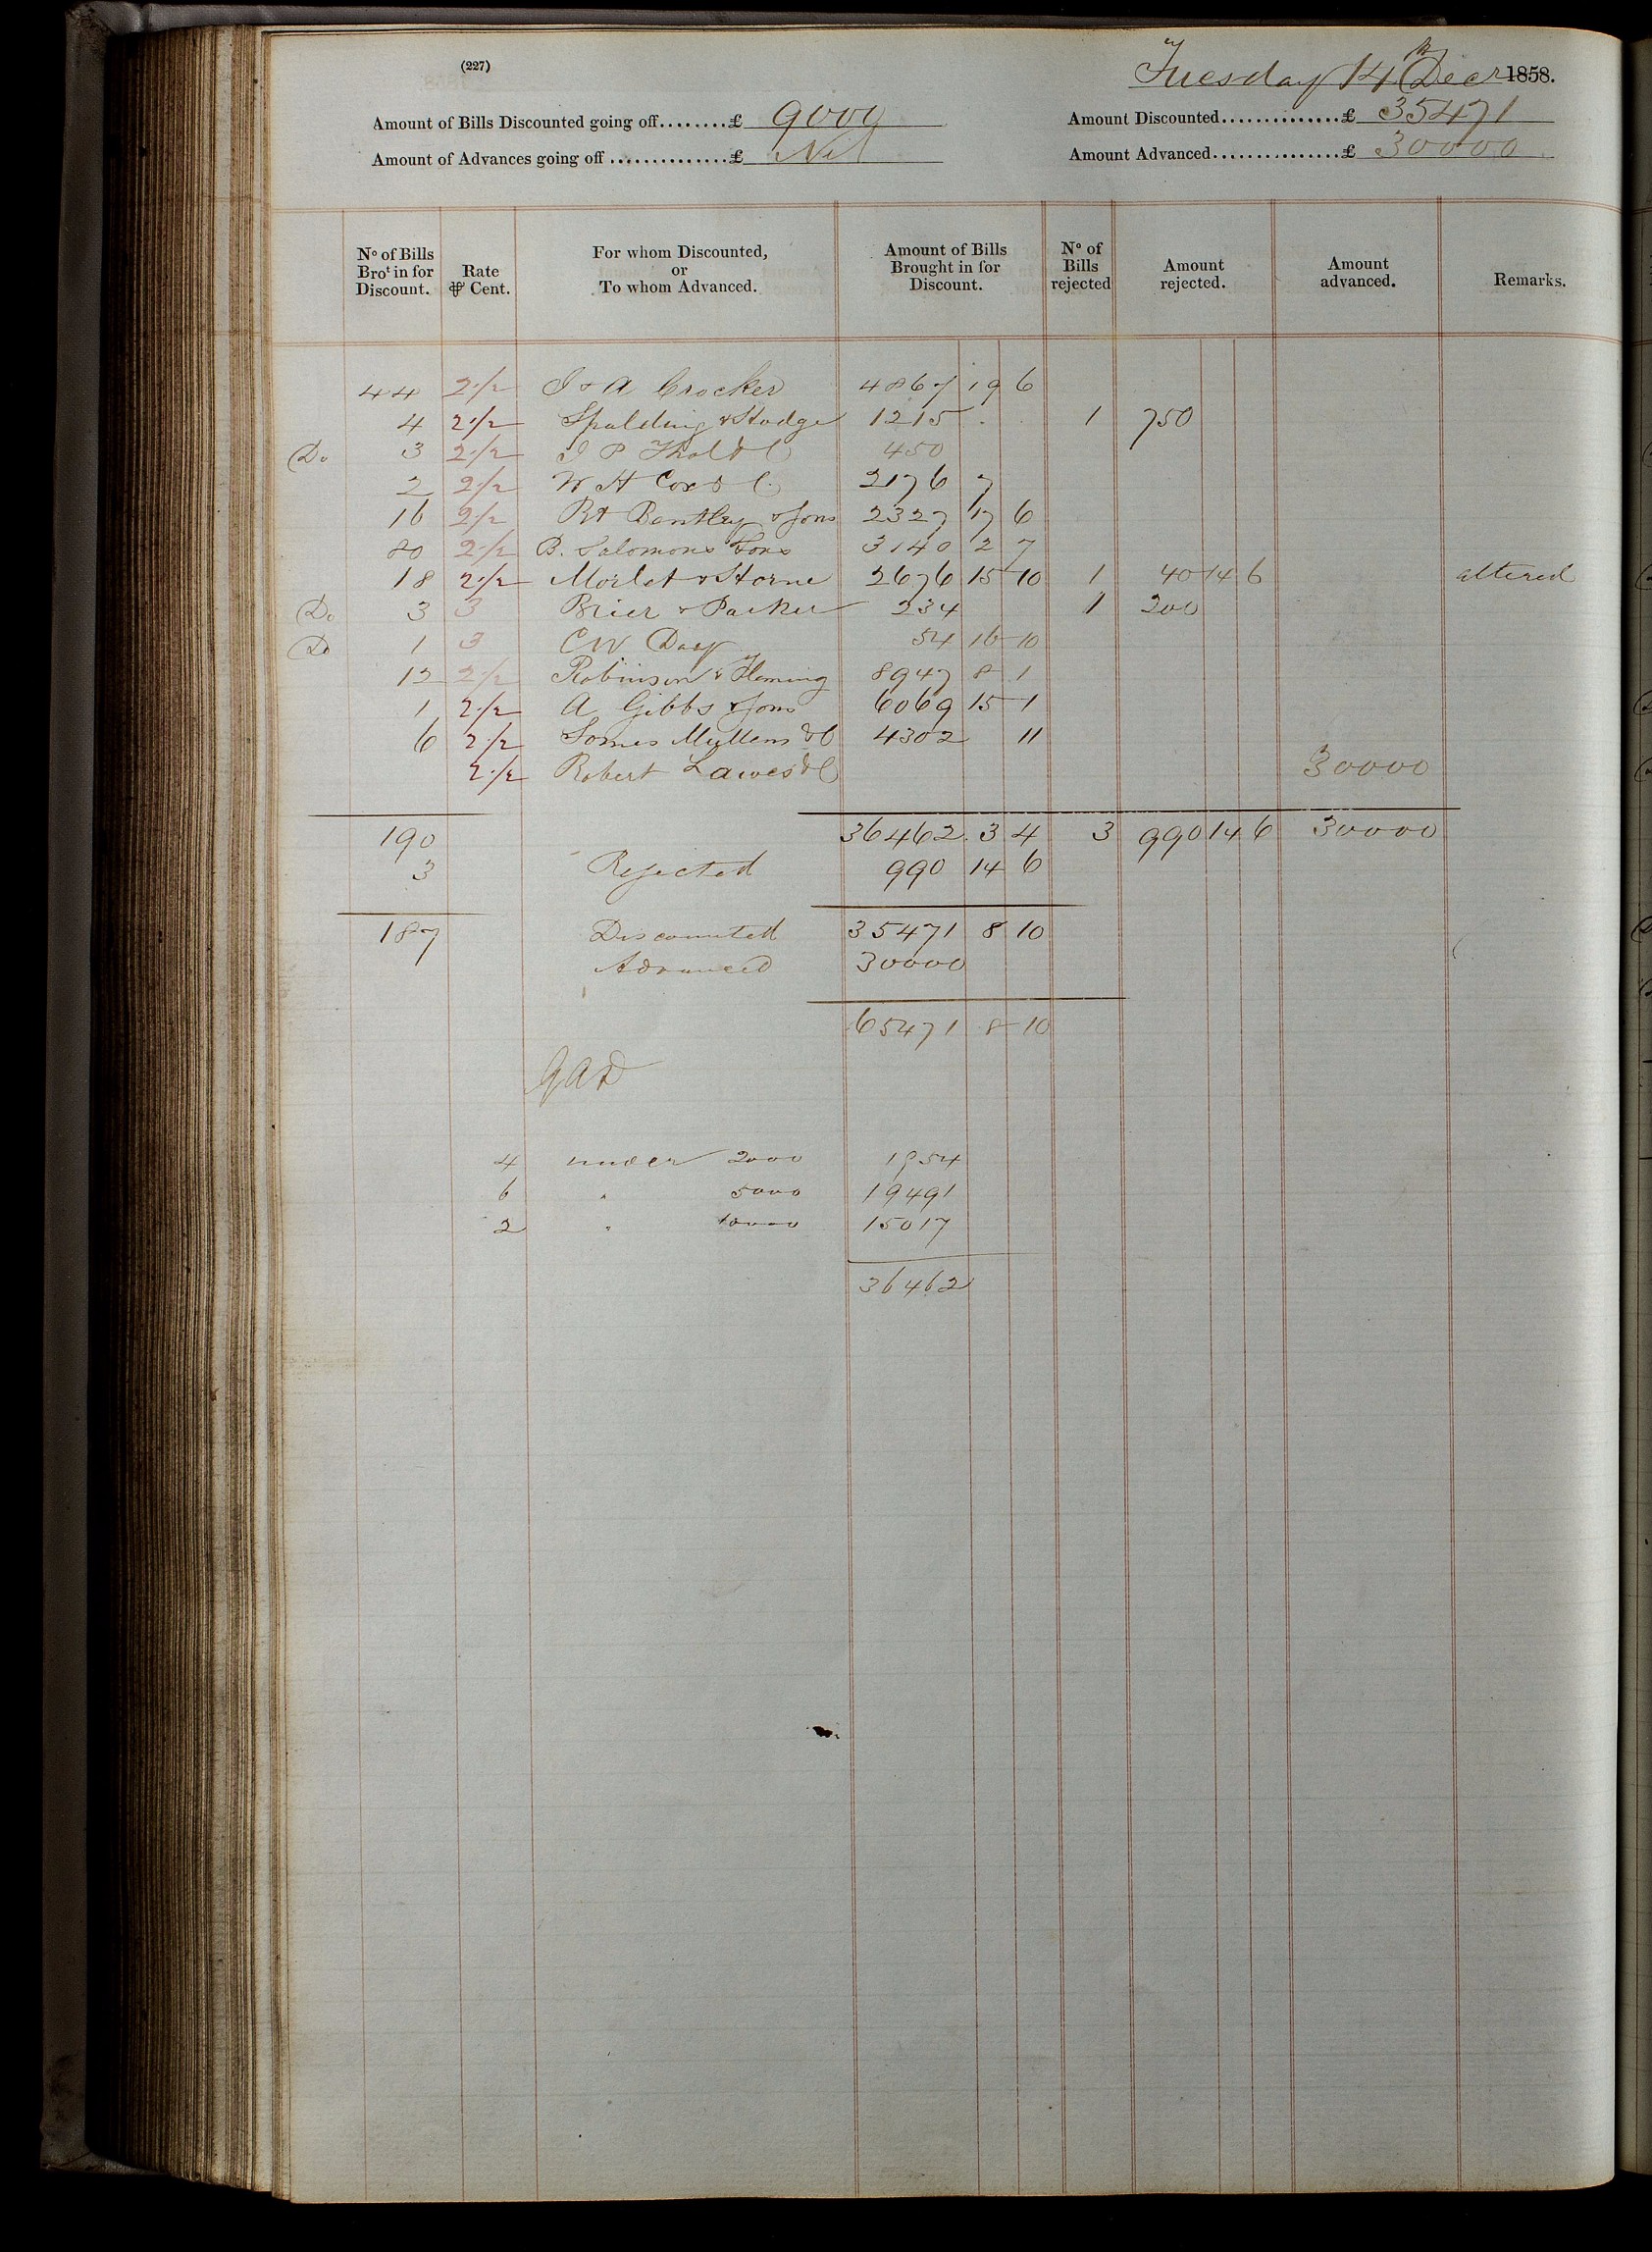 (227)
Tuesday 14th Decr 1858.
Amount of Bills Discounted going off........£ 9000
Amount Discounted..............£ 35471
Amount of Advances going off ..............£ Nil
Amount Advanced...............£ 30000
No of Bills Brot in for Discount.
Rate ⅌ Cent.
For whom Discounted, or To whom Advanced.
Amount of Bills Brought in for Discount.
No of Bills rejected
Amount rejected.
Amount advanced.
Remarks.
44 2½ J & A Crocker 4867 19 6
4 2½ Spalding & Hodge 1215 . 1 750
Do 3 2½ J P & C 450
2 2½ W H Cox & C 2176 7
16 2½ Rd Bentley & Sons 2327 17 6
80 2½ B. Salomons Sons 3140 2 7
18 2½ & Horne 2676 15 10 1 40 14 6 altered
Do 3 3 Brier & Parker 234 1 200
Do 1 3 CW 54 16 10
12 2½ Robinson & Fleming 8947 8 1
1 2½ A Gibbs & Sons 6069 15 1
6 2½ Somes Mullens & C 4302 11
2½ Robert Lawes & C 30000
190 36462 3 4 3 990 14 6 30000
3 Rejected 990 14 6
187 Discounted 35471 8 10
Advanced 30000
65471 8 10
4 under 2000 1954
6 " 5000 19491
2 " 10000 15017
36462